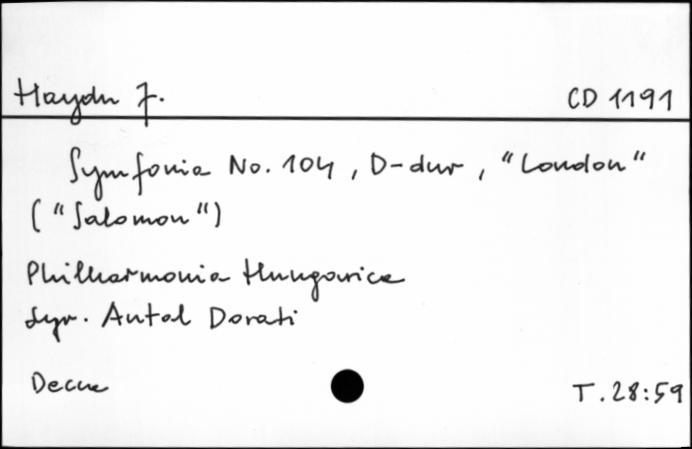 Haydn J. CD 1191
Symfonia No. 104, D-dur, "London"
("Salomon")
Philharmonia Hungarica
dyr. Antal Dorati
Decca T. 28:59